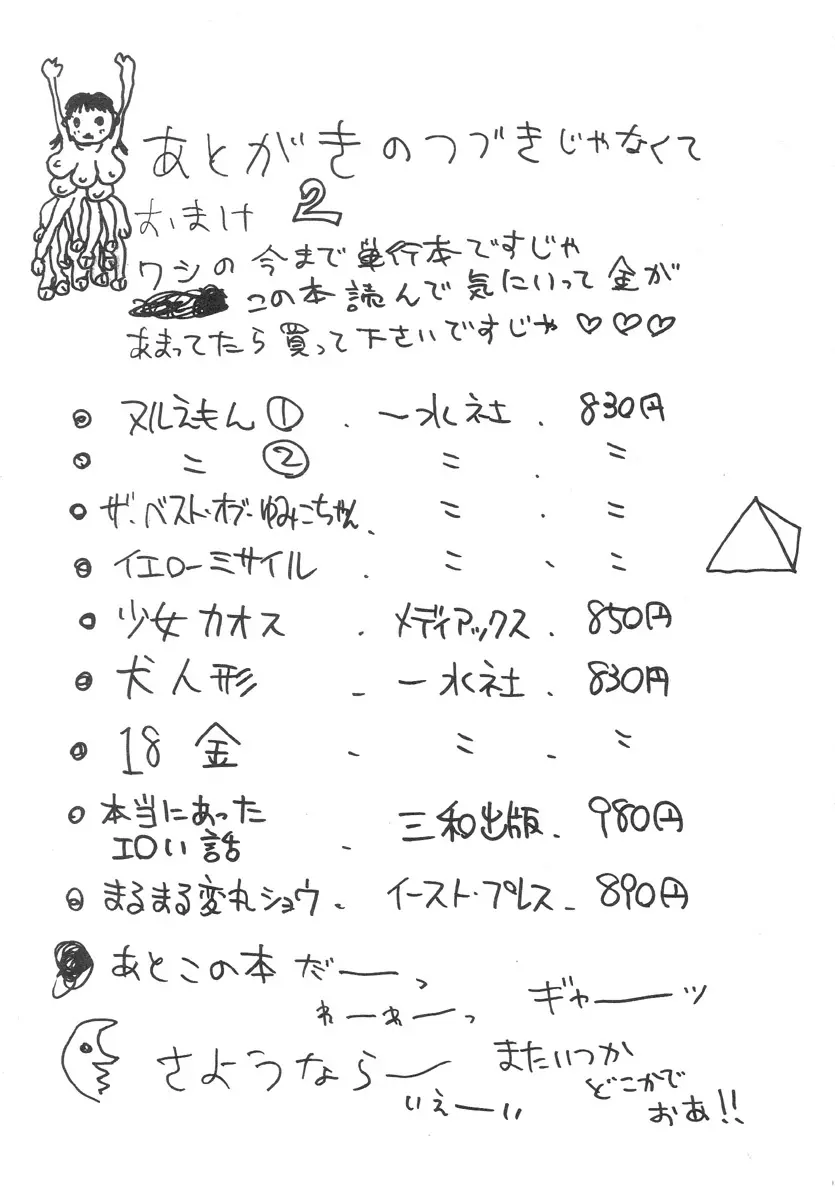 あとがきのつづきじゃなくて
おまけ 2
ワシの今まで単行本ですじゃ
この本読んで気にいって金が
あまってたら買って下さいですじゃ♡♡♡
ヌルえもん① . 一水社 . 830円
〃 ② 〃 . 〃
ザ・ベスト・オブ・ゆみこちゃん . 〃 . 〃
イエローミサイル . 〃 . 〃
少女カオス . メディアックス . 850円
犬人形 . 一水社 . 830円
18金 . 〃 . 〃
本当にあった
エロい話 . 三和出版 . 980円
まるまる変丸ショウ . イースト・プレス . 890円
あとこの本だーーっ
わーーっ
ギャーーッ
さようならー
いえーい
またいつか
どこかで
おあ!!